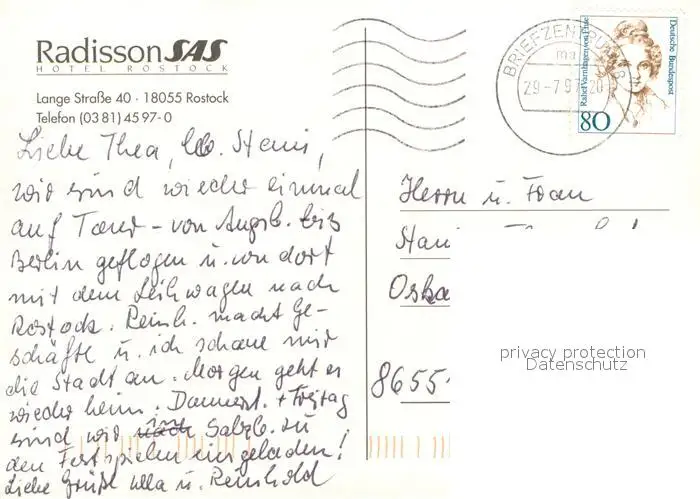 Radisson SAS
HOTEL ROSTOCK
Lange Straße 40 · 18055 Rostock
Telefon (03 81) 45 97-0
Liebe Thea, lb. Hans,
wir sind wieder einmal
auf Tour - von Augsb. bis
Berlin geflogen u. von dort
mit dem Leihwagen nach
Rostock. Reinh. macht Ge-
schäfte u. ich schaue mir
die Stadt an. Morgen geht es
wieder heim. Donnerst. + Freitag
sind wir in Salzb. zu
den Festspielen eingeladen!
Liebe Grüße Ulla u. Reinhold
BRIEFZENTRUM 18
ma
29-7.97-20
Deutsche Bundespost
Rahel Varnhagen von Ense
80
Herrn u. Frau
Oska
8655
privacy protection
Datenschutz